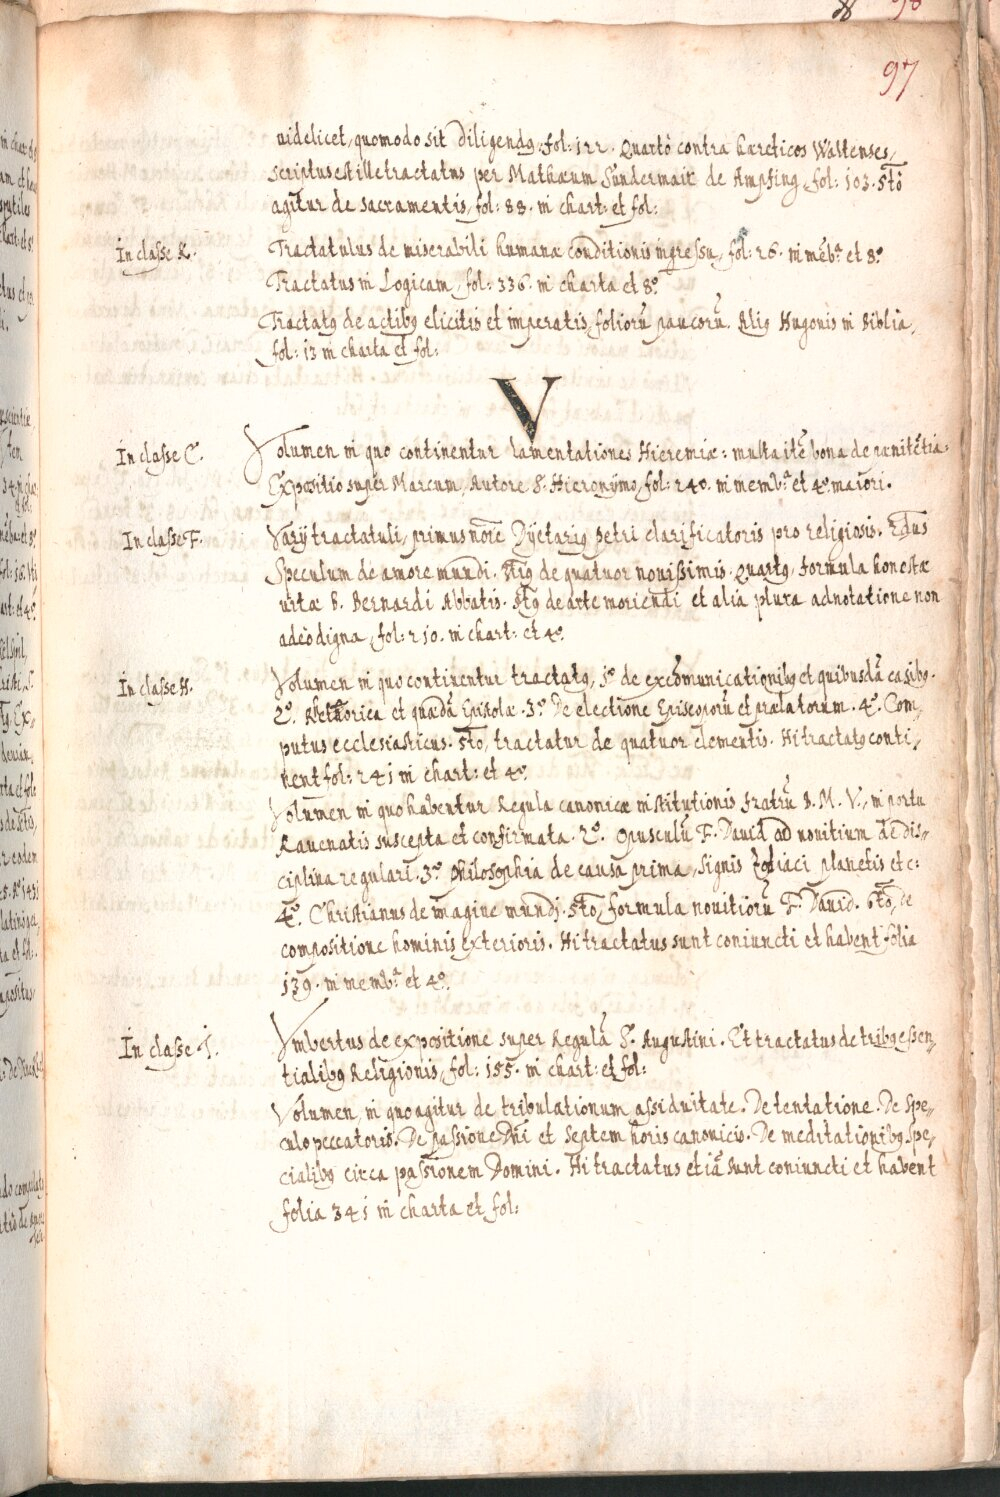 97
uidelicet, quomodo sit Diligendq, fol: 122. Quartò contra hæreticos Waltenses,
scriptus est ille tractatus per Mathæum Sündermair de Ampfing, fol: 103. 5to
agitur de sacramentis, fol: 88. in chart: et fol:
In classe K. Tractatulus de miserabili humanæ conditionis ingressu, fol: 26. in mēb.ª et 8.º
Tractatus in Logicam, fol: 336. in charta et 8.º
Tractatq de actibq elicitis et imperatis, foliorū paucorū. Aliq Hugonis in Biblia,
fol: 13 in charta et fol:
V
In classe C. Volumen in quo continentur lamentationes Hieremiæ: multa itē bona de pænitētia:
Expositio super Marcum, Autore S. Hieronymo, fol: 240. in memb.ª et 4.º maiori.
In classe F. Varij tractatuli, primus noīe Dyetariq Petri clarificatoris pro religiosis. 2dus
Speculum de amore mundi. 3tiq de quatuor nouissimis. Quartq, formula honestæ
uitæ B. Bernardi Abbatis. 5tq de arte moriendi et alia plura adnotatione non
adeò digna, fol: 210. in chart: et 4.º
In classe H. Volumen in quo continentur tractatq, 1.º de excōmunicationibq et quibusdā casibq.
2.º Rethorica et quædā Epistolæ. 3.º De electione Episcoporū et prælatorum. 4.º Com,,
putus ecclesiasticus. 5to, tractatur de quatuor elementis. Hi tractatq conti,,
nent fol: 241 in chart: et 4.º
Volumen in quo habentur Regula canonicæ institutionis fratrū B. M. V., in portu
Rauenatis suscepta et confirmata. 2.º Opusculū F. Dauid ad nouitium de dis,,
ciplina regulari. 3.º Philosophia de causa prima, signis Zodiaci planetis etc:
4.º Christianus de imagine mundj. 5to, formula nouitiorū F. Dauid. 6to, de
compositione hominis exterioris. Hi tractatus sunt coniuncti et habent folia
139. in memb.ª et 4.º
In classe I. Vmbertus de expositione super Regulā S. Augustini. Et tractatus de tribq essen,,
tialibq Religionis, fol: 155. in chart: et fol:
Volumen, in quo agitur de tribulationum assiduitate. De tentatione. De Spe,,
culo peccatoris. De passione Dñi et septem horis canonicis. De meditationibq spe,,
cialibq circa passionem Domini. Hi tractatus etiā sunt coniuncti et habent
folia 341 in charta et fol: